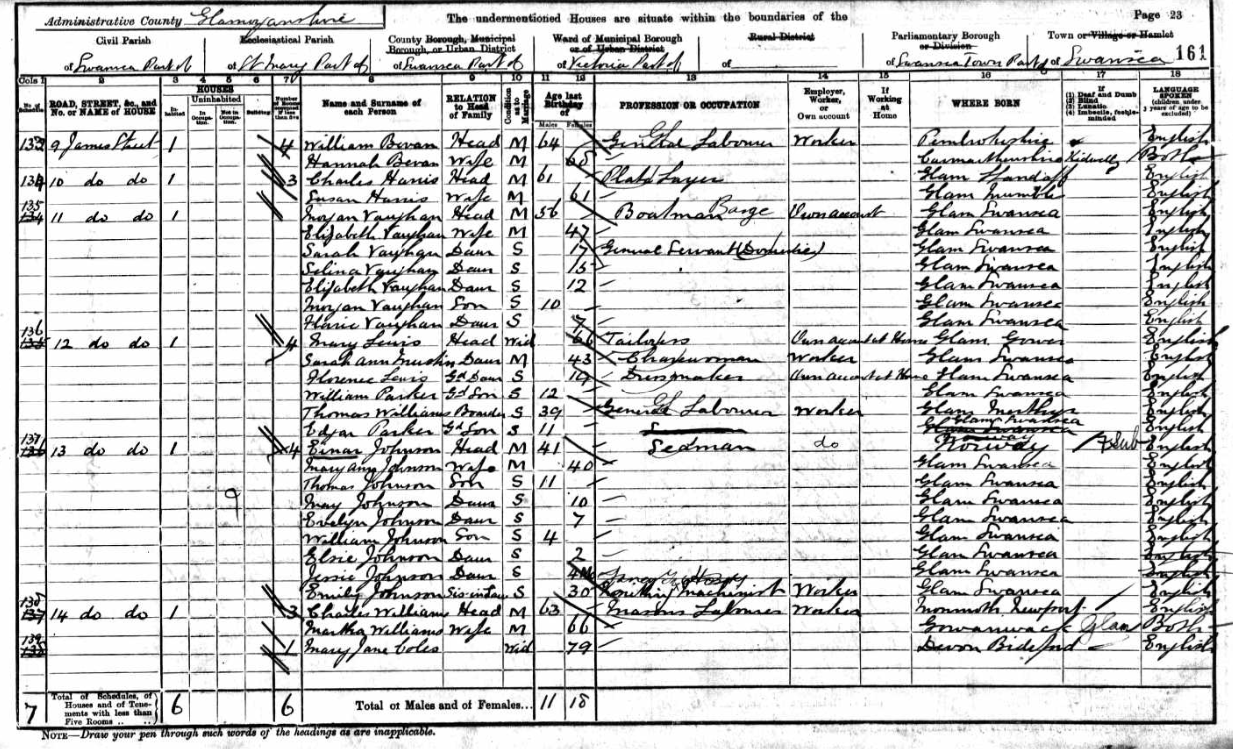 Administrative County Glamorganshire The undermentioned Houses are situate within the boundaries of the Page 23
Civil Parish Ecclesiastical Parish County Borough, Municipal Borough, or Urban District Ward of Municipal Borough or of Urban District Rural District Parliamentary Borough or Division Town or Village or Hamlet
of Swansea Part of of St Mary Part of of Swansea Part of of Victoria Part of of of Swansea Town Part of of Swansea 161
Cols 1 2 3 4 5 6 7 8 9 10 11 12 13 14 15 16 17 18
No. of Schedule ROAD, STREET, &c., and No. or NAME of HOUSE HOUSES Inhabited Uninhabited In Occupation. Not in Occupation. Building Name and Surname of each Person RELATION to Head of Family Condition as to Marriage Age last Birthday of Males Females PROFESSION OR OCCUPATION Employer, Worker, or Own account If Working at Home WHERE BORN If (1) Deaf and Dumb (2) Blind (3) Lunatic (4) Imbecile, feeble-minded LANGUAGE SPOKEN (children under 3 years of age to be excluded)
9 James Street 1 4 William Bevan Head M 64 General Labourer Worker Pembrokeshire English
Hannah Bevan Wife M 68 Carmarthenshire Kidwelly Both
134 10 do do 1 3 Charles Harris Head M 61 Plate Layer Glam Llandaff English
Susan Harris Wife M 61 Glam Mumble English
135 134 11 do do 1 Morgan Vaughan Head M 56 Boatman Barge Own account Glam Swansea English
Elizabeth Vaughan Wife M 47 Glam Swansea English
Sarah Vaughan Daur S 17 General Servant (Domestic) Glam Swansea English
Selina Vaughan Daur S 15 Glam Swansea English
Elizabeth Vaughan Daur S 12 Glam Swansea English
Morgan Vaughan Son S 10 Glam Swansea English
Florie Vaughan Daur S 7 Glam Swansea English
136 135 12 do do 1 4 Mary Lewis Head Wid 66 Tailoress Own account at Home Glam Gower English
Sarah Ann Daur M 43 Charwoman Worker Glam Swansea English
Florence Lewis Gd Daur S 19 Dressmaker Own account at Home Glam Swansea English
William Parker Gd Son S 12 Glam Swansea English
Thomas Williams Boarder S 39 General Labourer Worker Glam Merthyr English
Edgar Parker Gd Son S 11 Glam Swansea English
137 136 13 do do 1 4 Einar Johnson Head M 41 Seaman do Norway F Sub English
Mary Ann Johnson Wife M 40 Glam Swansea English
Thomas Johnson Son S 11 Glam Swansea English
May Johnson Daur S 10 Glam Swansea English
Evelyn Johnson Daur S 7 Glam Swansea English
William Johnson Son S 4 Glam Swansea English
Elsie Johnson Daur S 2 Glam Swansea English
Jessie Johnson Daur S 4M Glam Swansea English
Emily Johnson Sis in law S 30 Machinist Worker Glam Swansea English
138 137 14 do do 1 3 Charles Williams Head M 63 Masons Labourer Worker Monmouth Newport English
Martha Williams Wife M 66 Glam Both
139 138 1 Mary Jane Coles Wid 79 Devon Bideford English
7 Total of Schedules, of Houses and of Tenements with less than Five Rooms 6 6 Total of Males and of Females... 11 18
NOTE—Draw your pen through such words of the headings as are inapplicable.